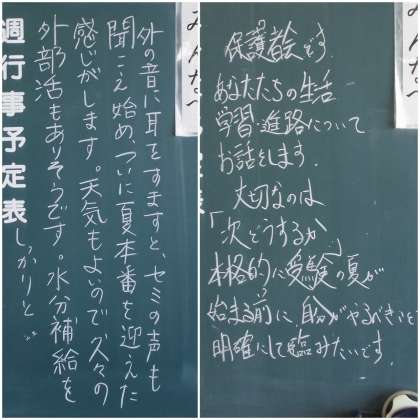 みんなへ
外の音に耳をすますと、セミの声も
聞こえ始め、ついに夏本番を迎えた
感じがします。天気もよいので久々の
外部活もありそうです。水分補給を
しっかりと
週行事予定表
保護者会です。
あなたたちの生活
学習・進路について
お話をします。
大切なのは
「次どうするか」
本格的に受験の夏が
始まる前に、自分がやるべきことを
明確にして臨みたいです。